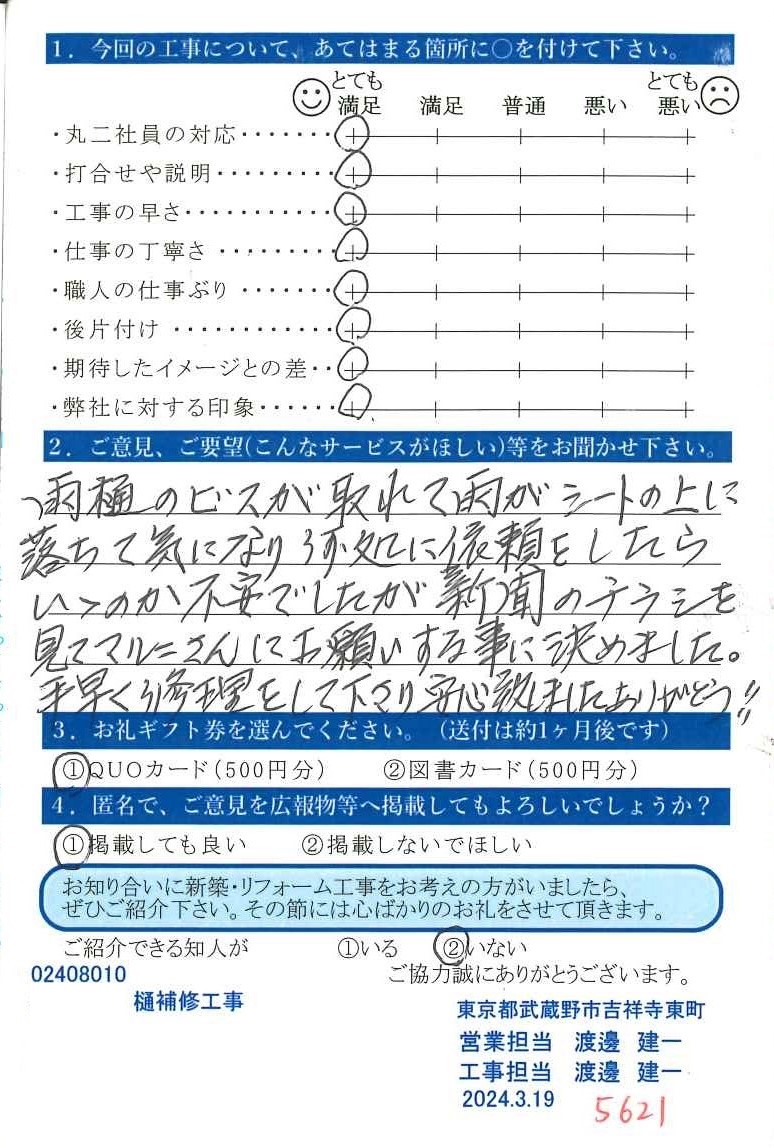 1. 今回の工事について、あてはまる箇所に○を付けて下さい。
とても満足 満足 普通 悪い とても悪い
・丸二社員の対応・・・・・・・
・打合せや説明・・・・・・・・・
・工事の早さ・・・・・・・・・・・
・仕事の丁寧さ ・・・・・・・・・
・職人の仕事ぶり ・・・・・・・
・後片付け ・・・・・・・・・・・・
・期待したイメージとの差・・
・弊社に対する印象・・・・・・
2. ご意見、ご要望(こんなサービスがほしい)等をお聞かせ下さい。
雨樋のビスが取れて雨がシートの上に
落ちて気になり 処に依頼をしたら
いいのか不安でしたが新聞のチラシを
見てマルニさんにお願いする事に決めました。
手早く修理をして下さり安心致しましたありがとう!!
3. お礼ギフト券を選んでください。(送付は約1ヶ月後です)
①QUOカード(500円分) ②図書カード(500円分)
4. 匿名で、ご意見を広報物等へ掲載してもよろしいでしょうか?
①掲載しても良い ②掲載しないでほしい
お知り合いに新築・リフォーム工事をお考えの方がいましたら、
ぜひご紹介下さい。その節には心ばかりのお礼をさせて頂きます。
ご紹介できる知人が ①いる ②いない
02408010 ご協力誠にありがとうございます。
樋補修工事
東京都武蔵野市吉祥寺東町
営業担当 渡邊 建一
工事担当 渡邊 建一
2024.3.19 5621